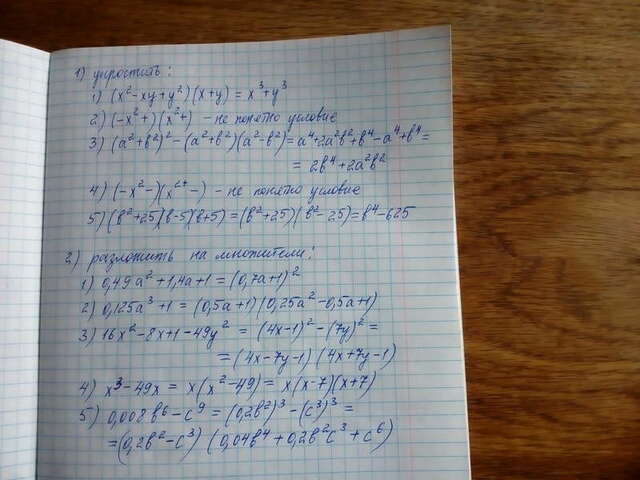 1) упростить:
1) (x²-xy+y²)(x+y) = x³+y³
2) (-x²+)(x²+) - не понятно условие
3) (a²+b²)²-(a²+b²)(a²-b²)=a⁴+2a²b²+b⁴-a⁴+b⁴=
= 2b⁴+2a²b²
4) (-x²-)(x²⁺-) - не понятно условие
5) (b²+25)(b-5)(b+5)=(b²+25)(b²-25)=b⁴-625
2) разложить на множители:
1) 0,49a²+1,4a+1=(0,7a+1)²
2) 0,125a³+1 = (0,5a+1)(0,25a²-0,5a+1)
3) 16x²-8x+1-49y² = (4x-1)²-(7y)²=
=(4x-7y-1)(4x+7y-1)
4) x³-49x = x(x²-49)=x(x-7)(x+7)
5) 0,008b⁶-c⁹=(0,2b²)³-(c³)³=
=(0,2b²-c³)(0,04b⁴+0,2b²c³+c⁶)